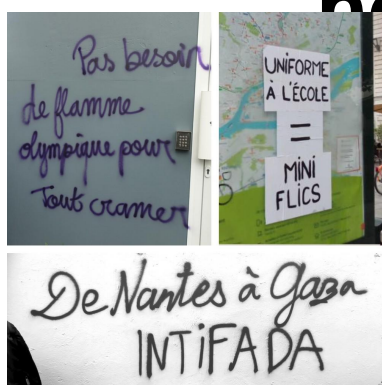 Pas besoin
de flamme
olympique pour
Tout cramer
UNIFORME
À L'ÉCOLE
=
MINI
FLICS
De Nantes à Gaza
INTIFADA